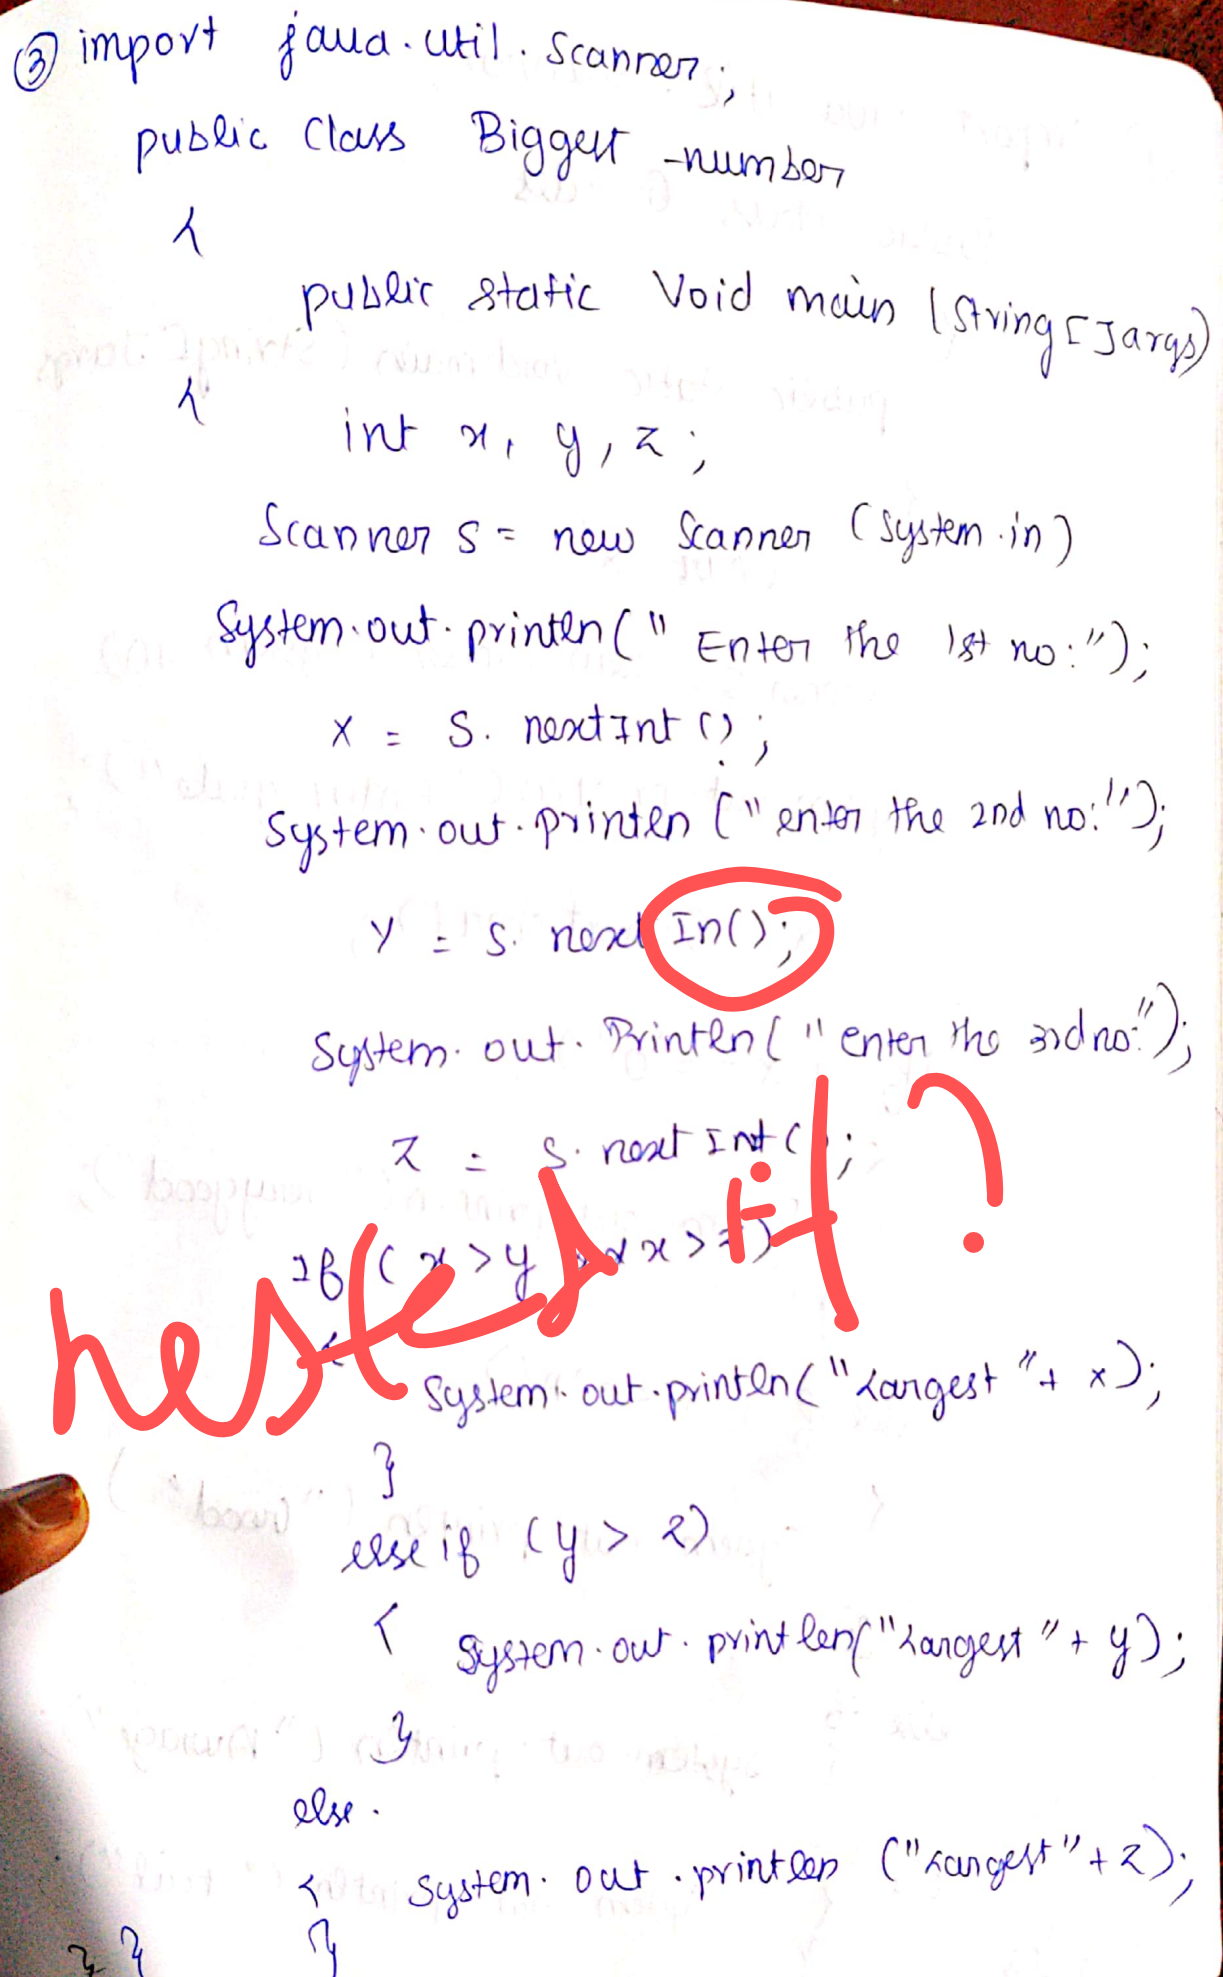 ③ import java.util.Scanner;
public Class Biggest _number
{
public static Void main (String[]args)
{
int x, y, z;
Scanner s = new Scanner (System.in)
System.out.println(" Enter the 1st no:");
x = S. nextInt();
System.out.println ("enter the 2nd no:");
y = s. next In();
System. out. Println(" enter the 3rd no:");
z = s. next Int();
nested if?
if ( x > y && x > z)
{
System. out.println("Largest "+ x);
}
else if (y > z)
{ System.out. println("Largest "+ y);
}
else.
{ System. out .println ("Largest"+z);
} } }